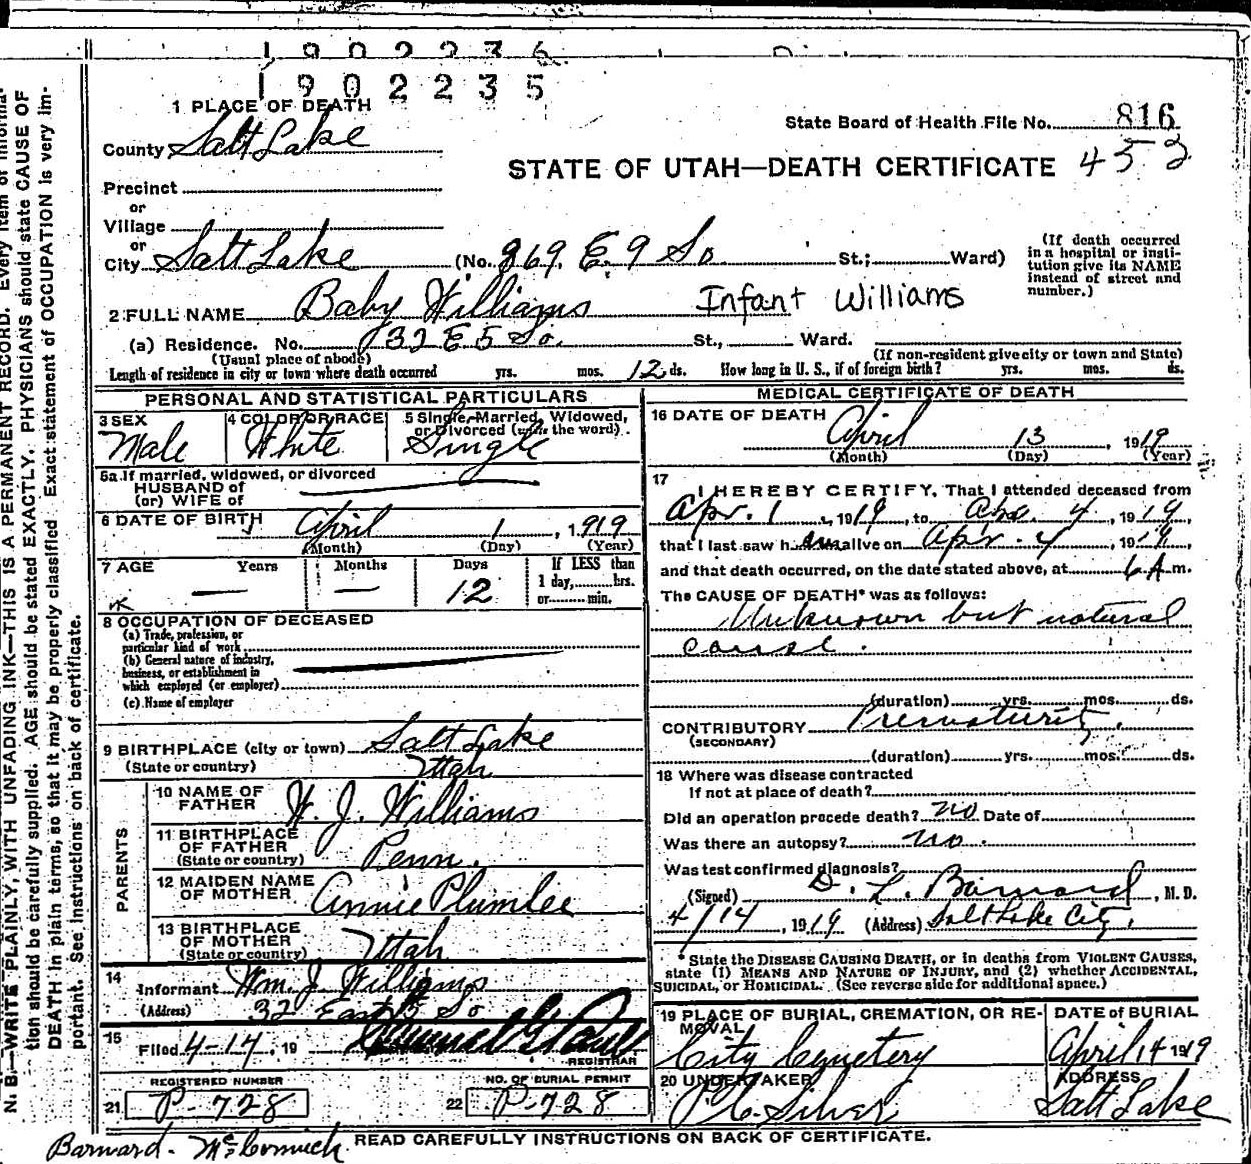 1902236
1902235
1 PLACE OF DEATH
County Salt Lake
State Board of Health File No. 816
STATE OF UTAH—DEATH CERTIFICATE 452
Precinct
or
Village
or
City Salt Lake (No. 869. E. 9 So St.; Ward)
(If death occurred in a hospital or insti-
tution give its NAME
instead of street and
number.)
2 FULL NAME Baby Williams Infant Williams
(a) Residence. No. 32 E 5 So. St., Ward.
(Usual place of abode) (If non-resident give city or town and State)
Length of residence in city or town where death occurred yrs. mos. 12 ds. How long in U. S., if of foreign birth? yrs. mos. ds.
PERSONAL AND STATISTICAL PARTICULARS
3 SEX Male
4 COLOR OR RACE White
5 Single, Married, Widowed, or Divorced (write the word) Single
5a If married, widowed, or divorced
HUSBAND of
(or) WIFE of
6 DATE OF BIRTH April 1, 1919
(Month) (Day) (Year)
7 AGE Years Months Days If LESS than
— — 12 1 day, hrs.
or min.
8 OCCUPATION OF DECEASED
(a) Trade, profession, or
particular kind of work
(b) General nature of industry,
business, or establishment in
which employed (or employer)
(c) Name of employer
9 BIRTHPLACE (city or town) Salt Lake
(State or country) Utah
PARENTS
10 NAME OF FATHER W. J. Williams
11 BIRTHPLACE OF FATHER (State or country) Penn.
12 MAIDEN NAME OF MOTHER Annie Plumlee
13 BIRTHPLACE OF MOTHER (State or country) Utah
14 Informant Wm. J. Williams
(Address) 32 East 5 So
15 Filed 4-14, 19
REGISTRAR
REGISTERED NUMBER
21 P-728
NO. OF BURIAL PERMIT
22 P-728
MEDICAL CERTIFICATE OF DEATH
16 DATE OF DEATH April 13, 1919
(Month) (Day) (Year)
17 I HEREBY CERTIFY, That I attended deceased from
Apr. 1, 1919, to Apr. 4, 1919,
that I last saw him alive on Apr. 4, 1919,
and that death occurred, on the date stated above, at 6 A m.
The CAUSE OF DEATH* was as follows:
Unknown but natural
cause.
(duration) yrs. mos. ds.
CONTRIBUTORY Prematurity.
(SECONDARY)
(duration) yrs. mos. ds.
18 Where was disease contracted
If not at place of death?
Did an operation precede death? no Date of
Was there an autopsy? no.
Was test confirmed diagnosis?
(Signed) D. L. Barnard, M. D.
4/14, 1919 (Address) Salt Lake City.
*State the DISEASE CAUSING DEATH, or in deaths from VIOLENT CAUSES,
state (1) MEANS AND NATURE OF INJURY, and (2) whether ACCIDENTAL,
SUICIDAL, or HOMICIDAL. (See reverse side for additional space.)
19 PLACE OF BURIAL, CREMATION, OR RE-
MOVAL City Cemetery
DATE of BURIAL April 14 1919
20 UNDERTAKER
ADDRESS Salt Lake
READ CAREFULLY INSTRUCTIONS ON BACK OF CERTIFICATE.
Barnard. McCormick.
N. B.—WRITE PLAINLY, WITH UNFADING INK—THIS IS A PERMANENT RECORD. Every item of informa-
tion should be carefully supplied. AGE should be stated EXACTLY. PHYSICIANS should state CAUSE OF
DEATH in plain terms, so that it may be properly classified. Exact statement of OCCUPATION is very im-
portant. See instructions on back of certificate.